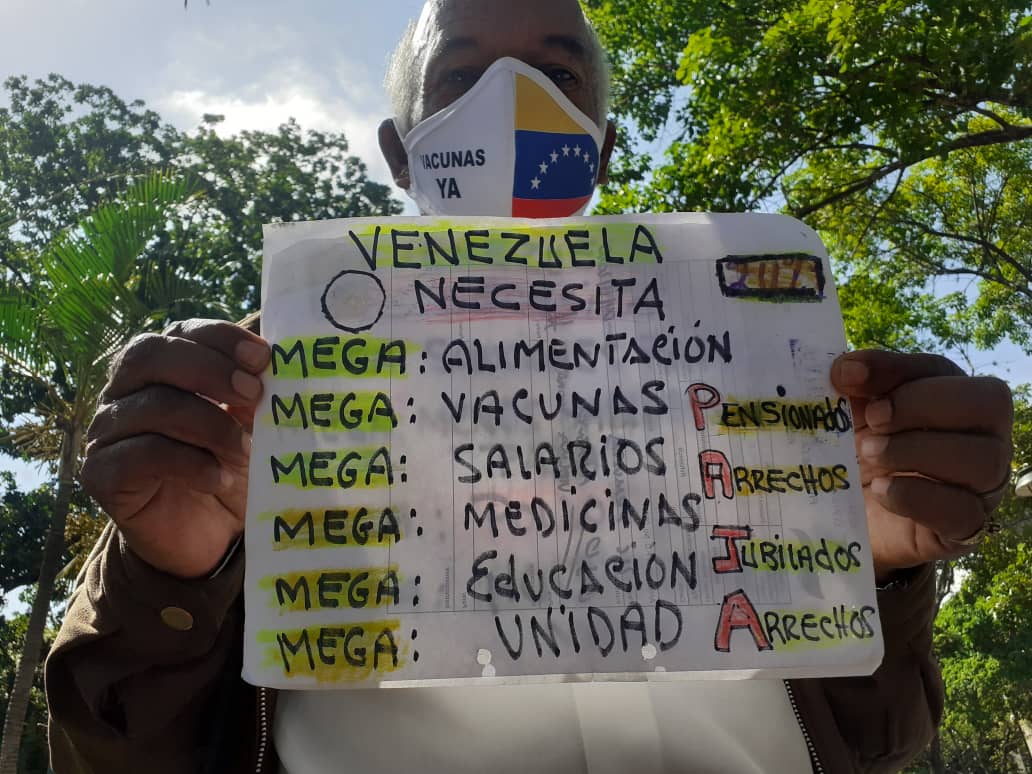 VACUNAS
YA
VENEZUELA
NECESITA
MEGA: ALIMENTACIÓN
MEGA: VACUNAS
MEGA: SALARIOS
MEGA: MEDICINAS
MEGA: EDUCACIÓN
MEGA: UNIDAD
PENSIONADOS
ARRECHOS
JUBILADOS
ARRECHOS